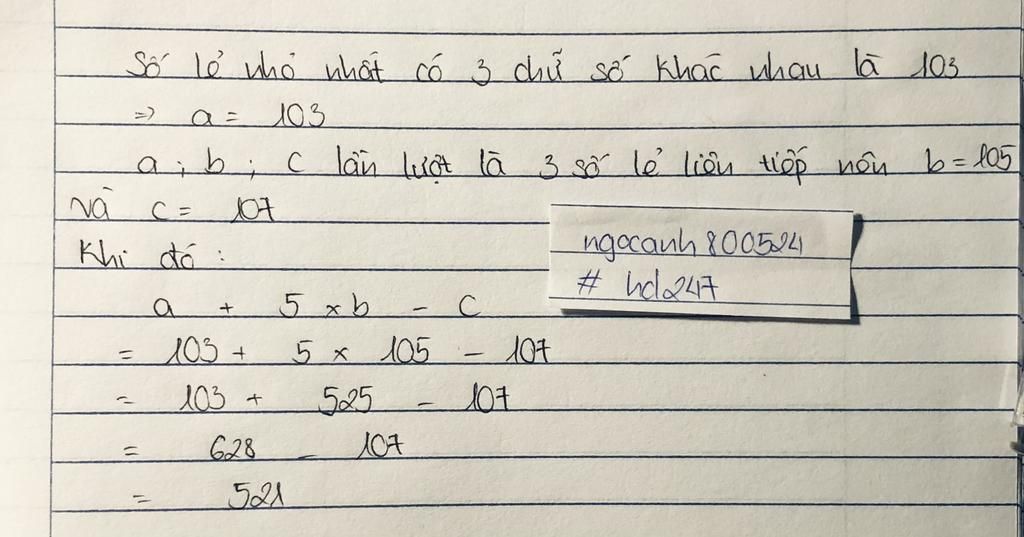 Số lẻ nhỏ nhất có 3 chữ số khác nhau là 103
=> a = 103
a ; b ; c lần lượt là 3 số lẻ liên tiếp nên b = 105
và c = 107
Khi đó :
ngocanh800524
# hd247
a + 5 x b - c
= 103 + 5 x 105 - 107
= 103 + 525 - 107
= 628 - 107
= 521